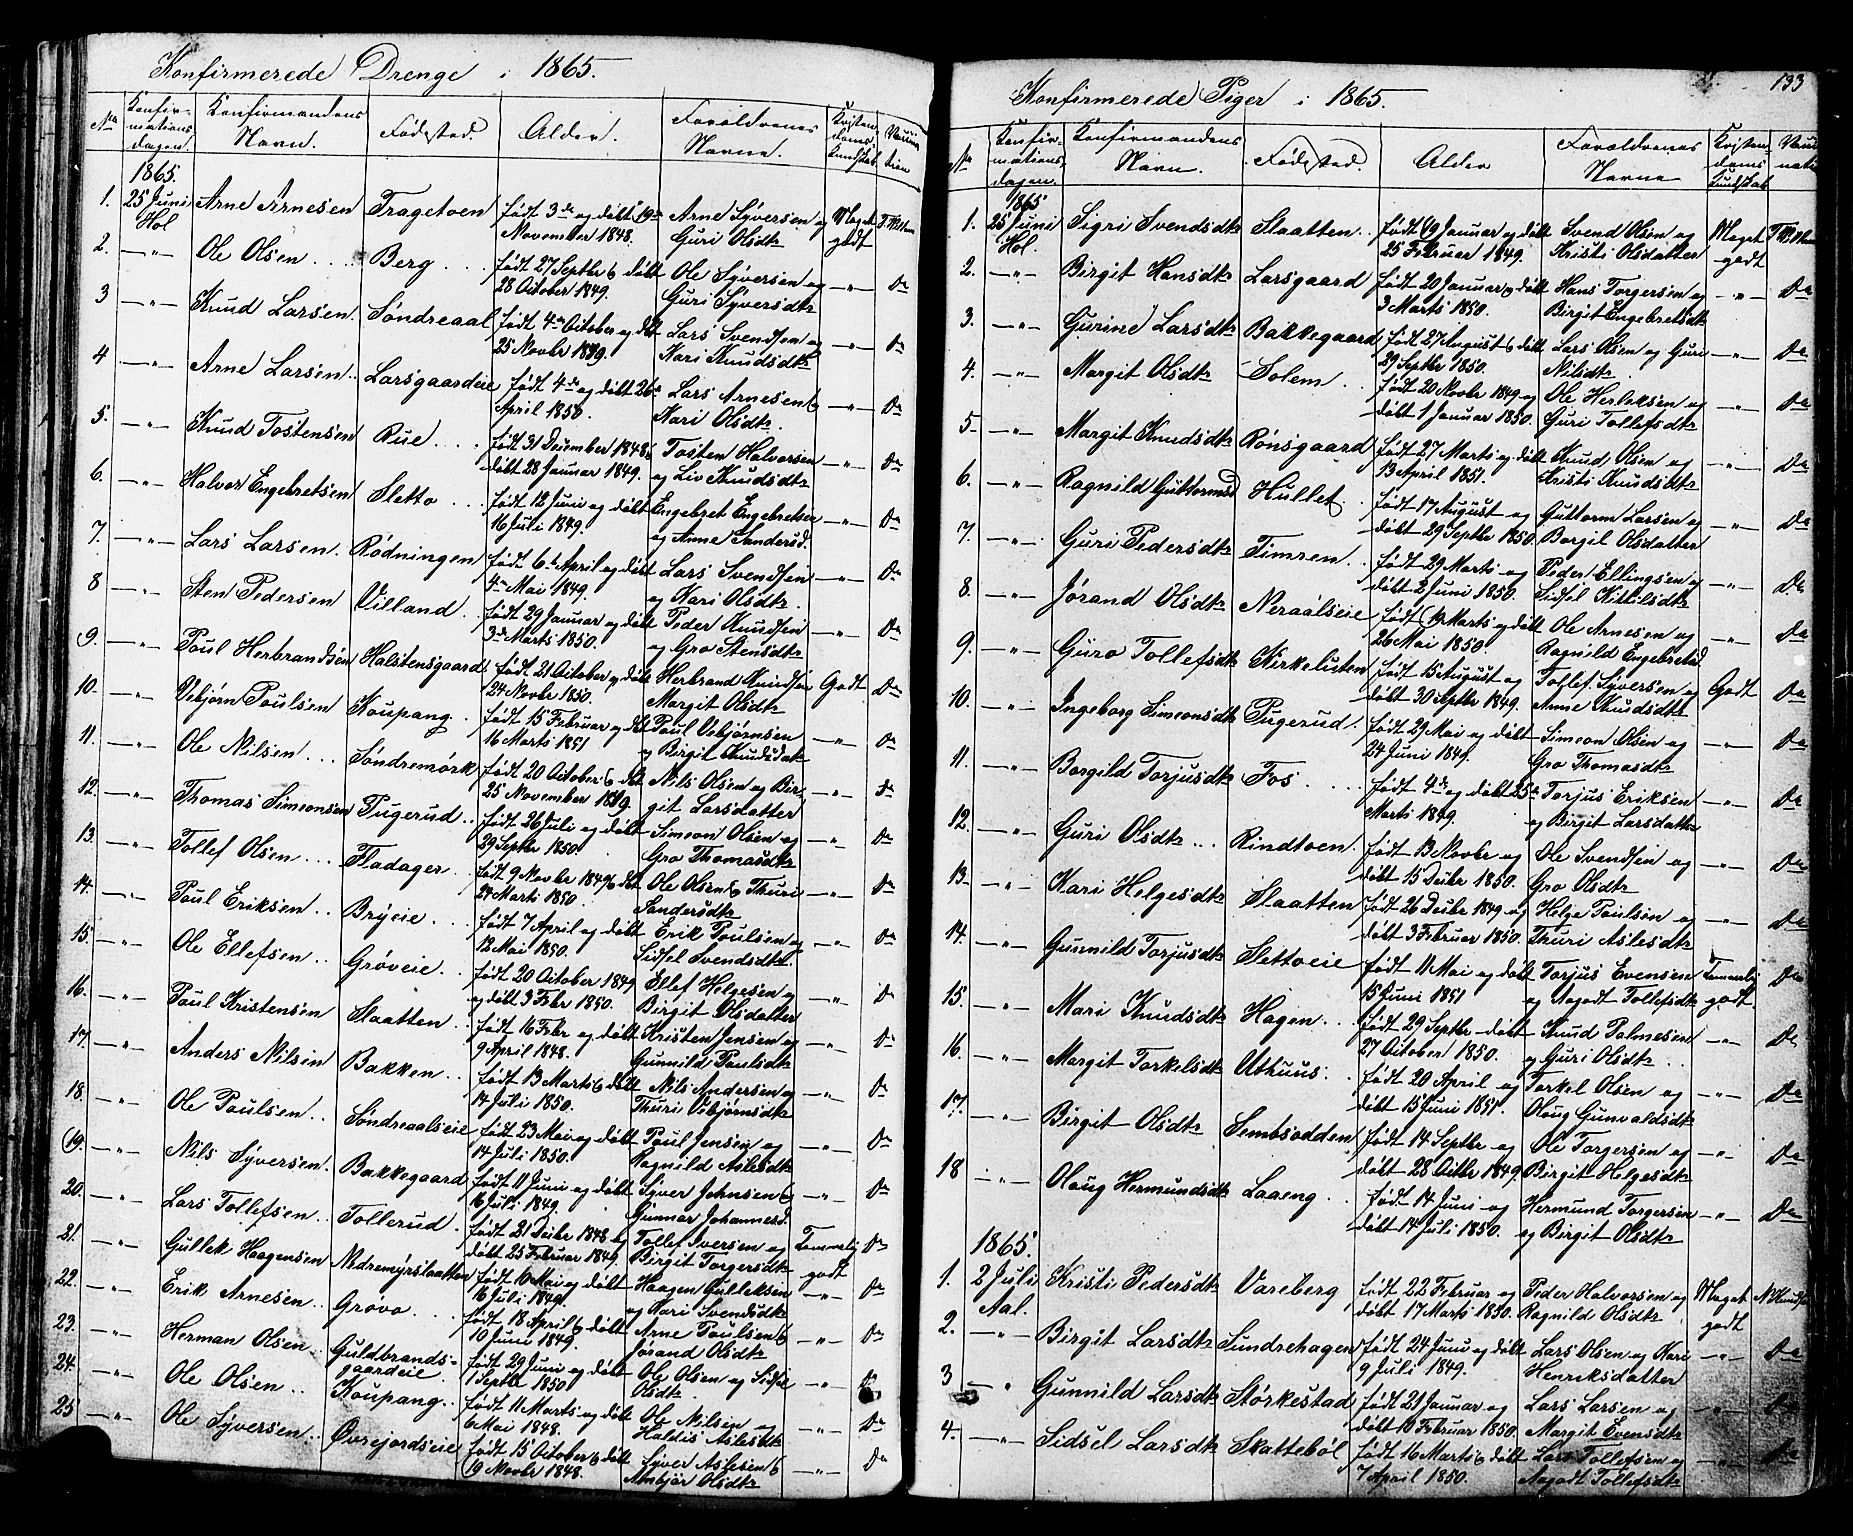 Konfirmerede Drenge i 1865.
No Konfirmationsdagen. Konfirmandens Navn. Fødested. Alder. Forældrenes Navne. Kristendoms Kundskab
1865.
1. 25 Juni Hol Arne Arnesen Tragetoen født 3de og døbt 19de November 1848. Arne Syversen og Guri Olsdtr Meget godt
2. —"— Ole Olsen Berg født 27 Septbr & døbt 28 October 1849. Ole Syversen og Guri Syversdtr —"— Do
3 —"— Knud Larsen Søndreaal født 4de October og døbt 25 Novbr 1849. Lars Svendsen og Kari Knudsdtr —"— Do
4 —"— Arne Larsen Larsgaardeie født 4de og døbt 26de April 1850. Lars Arnesen & Kari Olsdtr —"— Do
5. —"— Knud Tostensen Rue født 31 December 1848 døbt 28 Januar 1849. Tosten Halvorsen og Liv Knudsdtr —"— Do
6. —"— Halvor Engebretsen Sletto født 12 Juni og døbt 16 Juli 1849. Engebret Engebretsen og Anne Sandersd. —"— Do
7. —"— Lars Larsen Rødningen født 6te April og døbt 4de Mai 1849. Lars Svendsen og Kari Olsdtr —"— Do
8 —"— Sten Pedersen Villand født 29 Januar og døbt 3de Marts 1850. Peder Knudsen og Gro Stensdtr —"— Do
9. —"— Poul Herbrandsen Halstensgaard født 21 October og døbt 24 Novbr 1850. Herbrand Knudsen Margit Olsdtr Godt Do
10. —"— Vebjørn Poulsen Koupang født 15 Februar og døbt 16 Marts 1851 Poul Vebjørnsen og Birgit Knudsdatr —"— Do
11. —"— Ole Nilsen Søndremørk født 20 October & døbt 25 November 1849. Nils Olsen og Birgit Larsdatter —"— Do
12. —"— Thomas Simeonsen Pugerud født 26 Juli og døbt 29 Septbr 1850. Simeon Olsen og Gro Thomasdtr —"— Do
13. —"— Tollef Olsen Fladager født 9 Novbr 1849 & døbt 24 Marts 1850 Ole Olsen & Thuri Sandersdtr —"— Do
14. —"— Poul Eriksen Bryeie født 7 April og døbt 12 Mai 1850. Erik Poulsen og Sidsel Svendsdtr —"— Do
15. —"— Ole Ellefsen Grøveie født 20 October 1849 og døbt 3 Febr 1850. Ellef Helgesen og Birgit Olsdatter —"— Do
16. —"— Poul Kristensen Slaatten født 16 Febr og døbt 9 April 1848. Kristen Jensen og Gunnild Poulsdtr —"— Do
17. —"— Anders Nilsen Bakken født 13 Marts & døbt 14 Juli 1850. Nils Andersen og Thuri Vebjørnsdtr —"— Do
18. —"— Ole Poulsen Søndreaalseie født 23 Mai og døbt 14 Juli 1850. Poul Jensen og Ragnild Aslesdtr —"— Do
19. —"— Nils Syversen Bakkegaard født 11 Juni og døbt 16 Juli 1849. Syver Johnsen & Gunnar Johannesd. —"— Do
20. —"— Lars Tollefsen Tollerud født 21 Decbr 1848 og døbt 25 Februar 1849. Tollef Iversen og Birgit Torgersdtr Temmelig godt Do
21. —"— Gullek Haagensen Nedremyrslaatten født 10 Mai og døbt 16 Juli 1849. Haagen Gulleksen og Kari Svendsdtr —"— Do
22. —"— Erik Arnesen Grovo født 18 April & døbt 10 Juni 1849. Arne Poulsen & Jørand Olsdtr —"— Do
23. —"— Herman Olsen Guldbrandsgaardeie født 29 Juni og døbt 1 Septbr 1850 Ole Olsen og Sidsel Olsdtr —"— Do
24. —"— Ole Olsen Koupang født 11 Marts og døbt 6 Mai 1848. Ole Nilsen og Haldis Aslesdtr —"— Do
25 —"— Ole Syversen Øvrejordseie født 15 October & døbt 19 Novbr 1848. Syver Aslesen & Ambjør Olsdtr —"— Do
133
Konfirmerede Piger i 1865.
No Konfirmationsdagen. Konfirmandens Navn. Fødested. Alder Forældrenes Navne Kristendoms Kundskab
1865
1. 25 Juni Hol. Sigri Svendsdtr Slaatten født 19 Januar og døbt 25 Februar 1849. Svend Olsen og Kristi Olsdatter Meget godt
2. —"— Birgit Hansdtr Larsgaard født 20 Januar og døbt 3 Marts 1850. Hans Torgersen og Birgit Engebretsdtr —"— Do
3. —"— Gurine Larsdtr Bakkegaard født 27 August & døbt 29 Septbr 1850. Lars Olsen og Guri Nilsdtr —"— Do
4. —"— Margit Olsdtr Solem født 20 Novbr 1849 og døbt 1 Januar 1850. Ole Herleksen og Guri Tollefsdtr —"— Do
5. —"— Margit Knudsdtr Rønsgaard født 27 Marts og døbt 13 April 1851. Knud Olsen og Kristi Knudsdtr —"— Do
6. —"— Ragnild Guttormsd Hullet født 17 August og døbt 29 Septbr 1850 Guttorm Larsen og Borgil Olsdatter —"— Do
7. —"— Guri Pedersdtr Timren født 29 Marts og døbt 2 Juni 1850. Peder Ellingsen og Sidsel Kittilsdtr —"— Do
8. —"— Jørand Olsdtr Neraalseie født 19 Marts og døbt 26 Mai 1850 Ole Arnesen og Ragnild Engebretsd. —"— Do
9. —"— Guro Tollefsdtr Kirkelien født 15 August og døbt 30 Septbr 1849. Tollef Syversen og Anne Knudsdtr Godt Do
10. —"— Ingeborg Simeonsdtr Pugerud født 29 Mai og døbt 24 Juni 1849. Simeon Olsen og Gro Thomasdtr —"— Do
11. —"— Borgild Torjusdtr Fos født 4de og døbt 25de Marts 1849. Torjus Eriksen og Birgit Larsdatter —"— Do
12. —"— Guri Olsdtr Rindtoen født 13 Novbr og døbt 15 Decbr 1850. Ole Svendsen og Gro Olsdtr —"— Do
13. —"— Kari Helgesdtr Slaatten født 26 Decbr 1849 og døbt 3 Februar 1850. Helge Poulsen og Thuri Aslesdtr —"— Do
14. —"— Gunnild Torjusdtr Slettoeie født 11 Mai og døbt 15 Juni 1851 Torjus Evensen og Aagodt Tollefsdtr Temmelig godt Do
15. —"— Mari Knudsdtr Hagen født 29 Septbr døbt 27 October 1850. Knud Palmesen og Guri Olsdtr —"— Do
16. —"— Margit Torkelsdtr Uthuus født 20 April og døbt 15 Juni 1851. Torkel Olsen og Olaug Gunvaldsdtr —"— Do
17. —"— Birgit Olsdtr Sembsodden født 14 Septbr og døbt 28 Octbr 1849 Ole Torgersen og Birgit Helgesdtr —"— Do
18 —"— Olaug Hermundsdtr Laaeng født 14 Juni og døbt 14 Juli 1850. Hermund Torgersen og Birgit Olsdtr —"— Do
1865.
1. 2 Juli Aal. Kristi Pedersdtr Vareberg født 22 Februar og døbt 17 Marts 1850. Peder Halvorsen og Ragnild Olsdtr Meget godt
2. —"— Birgit Larsdtr Sundrehagen født 24 Juni og døbt 9 Juli 1849. Lars Olsen og Kari Henriksdatter —"— Do
3 —"— Gunnild Larsdtr Størkestad født 21 Januar og døbt 10 Februar 1850. Lars Larsen og Margit Evensdtr —"— Do
4. —"— Sidsel Larsdtr Skattebøl født 16 Marts & døbt 7 April 1850. Lars Tollefsen og Aagodt Tollefsdtr —"— Do